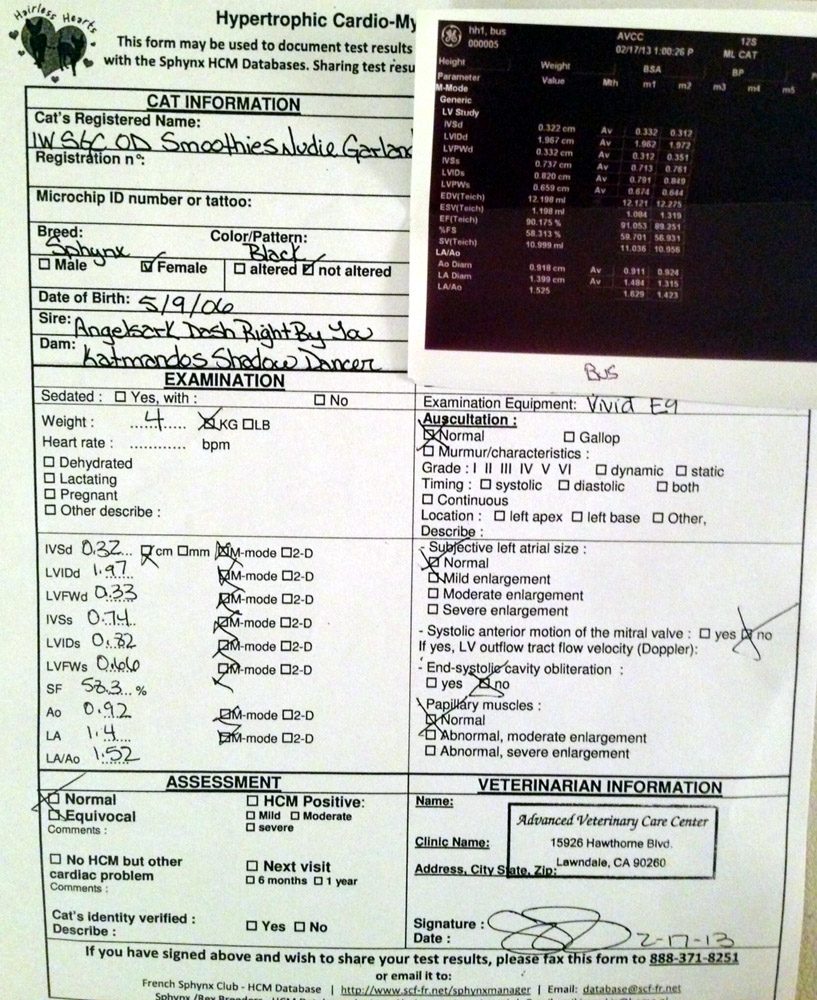 Hairless Hearts
Hypertrophic Cardio-My
This form may be used to document test results
with the Sphynx HCM Databases. Sharing test resu
CAT INFORMATION
Cat's Registered Name:
IW SGC OD Smoothies Nudie Garlan
Registration n°:
Microchip ID number or tattoo:
Breed: Color/Pattern:
Sphynx Black
☐ Male ☑ Female ☐ altered ☑ not altered
Date of Birth: 5/9/06
Sire: Angelsark Dash Right By You
Dam: Katmandos Shadow Dancer
hh1, bus AVCC 12S
000005 02/17/13 1:00:26 P ML CAT
Height Weight BSA BP P
Parameter Value Mth m1 m2 m3 m4 m5
M-Mode
Generic
LV Study
IVSd 0.322 cm Av 0.332 0.312
LVIDd 1.967 cm Av 1.962 1.972
LVPWd 0.332 cm Av 0.312 0.351
IVSs 0.737 cm Av 0.713 0.761
LVIDs 0.820 cm Av 0.791 0.849
LVPWs 0.659 cm Av 0.674 0.644
EDV(Teich) 12.198 ml 12.121 12.275
ESV(Teich) 1.198 ml 1.084 1.319
EF(Teich) 90.175 % 91.053 89.251
%FS 58.313 % 59.701 56.931
SV(Teich) 10.999 ml 11.036 10.956
LA/Ao
Ao Diam 0.918 cm Av 0.911 0.924
LA Diam 1.399 cm Av 1.484 1.315
LA/Ao 1.525 1.629 1.423
Bus
EXAMINATION
Sedated : ☐ Yes, with : ☐ No
Weight : 4 ☒ KG ☐ LB
Heart rate : ............ bpm
☐ Dehydrated
☐ Lactating
☐ Pregnant
☐ Other describe :
Examination Equipment: Vivid E9
Auscultation :
☒ Normal ☐ Gallop
☐ Murmur/characteristics :
Grade : I II III IV V VI ☐ dynamic ☐ static
Timing : ☐ systolic ☐ diastolic ☐ both
☐ Continuous
Location : ☐ left apex ☐ left base ☐ Other,
Describe :
IVSd 0.32 ☒ cm ☐ mm ☒ M-mode ☐ 2-D
LVIDd 1.97 ☒ M-mode ☐ 2-D
LVFWd 0.33 ☒ M-mode ☐ 2-D
IVSs 0.74 ☒ M-mode ☐ 2-D
LVIDs 0.82 ☒ M-mode ☐ 2-D
LVFWs 0.66 ☒ M-mode ☐ 2-D
SF 58.3 %
Ao 0.92 ☒ M-mode ☐ 2-D
LA 1.4 ☒ M-mode ☐ 2-D
LA/Ao 1.52
- Subjective left atrial size :
☒ Normal
☐ Mild enlargement
☐ Moderate enlargement
☐ Severe enlargement
- Systolic anterior motion of the mitral valve : ☐ yes ☒ no
If yes, LV outflow tract flow velocity (Doppler):
- End-systolic cavity obliteration :
☐ yes ☒ no
- Papillary muscles :
☒ Normal
☐ Abnormal, moderate enlargement
☐ Abnormal, severe enlargement
ASSESSMENT
☒ Normal ☐ HCM Positive:
☐ Equivocal ☐ Mild ☐ Moderate
Comments : ☐ severe
☐ No HCM but other ☐ Next visit
cardiac problem ☐ 6 months ☐ 1 year
Comments :
Cat's identity verified : ☐ Yes ☐ No
Describe :
VETERINARIAN INFORMATION
Name:
Clinic Name:
Address, City State, Zip:
Advanced Veterinary Care Center
15926 Hawthorne Blvd.
Lawndale, CA 90260
Signature :
Date : 2-17-13
If you have signed above and wish to share your test results, please fax this form to 888-371-8251
or email it to:
French Sphynx Club - HCM Database | http://www.scf-fr.net/sphynxmanager | Email: database@scf-fr.net